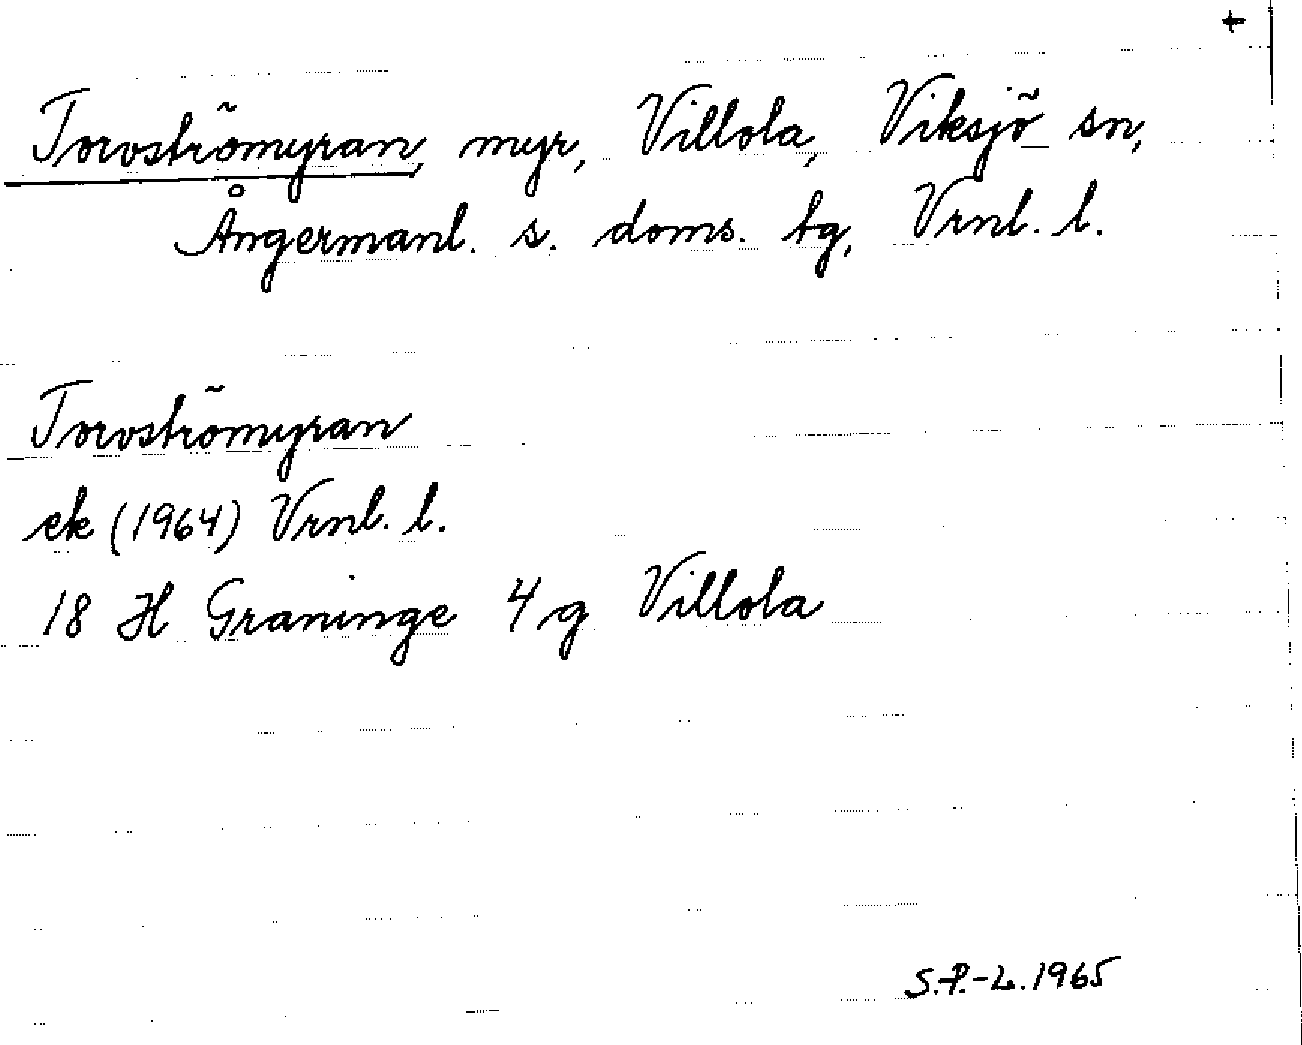 +
Torvströmyran, myr, Villola, Viksjö sn,
Ångermanl. s. doms. tg, Vrnl. l.
Torvströmyran
ek (1964) Vrnl. l.
18 H Graninge 4 g Villola
S.P.-L. 1965